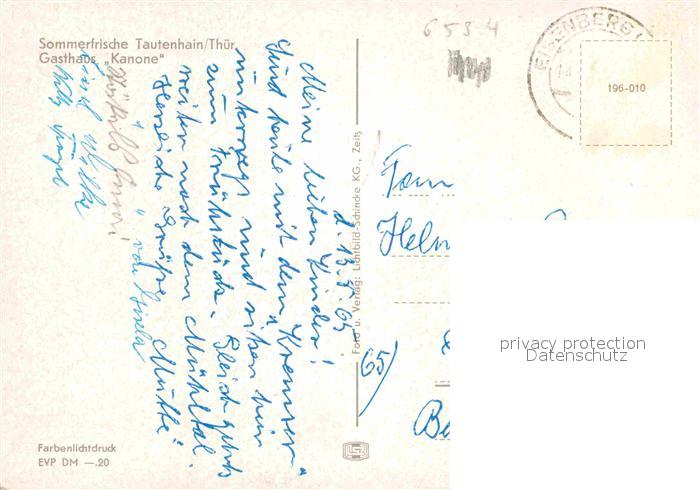 6534
Sommerfrische Tautenhain/Thür.
Gasthaus „Kanone"
EISENBERG
196-010
d. 13. 7. 65
Meine lieben Kinder!
Sind heute mit dem „Kremser"
unterwegs und sitzen hier
zum Frühstück. Gleich gehts
weiter nach dem Mühltal.
Herzliche Grüße Mutti
" von Gisela
Foto u. Verlag: Lichtbild-Schincke KG., Zeitz
Fam
Helm
65/
privacy protection
Datenschutz
Farbenlichtdruck
EVP DM —.20